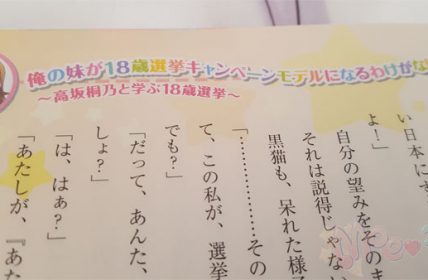 俺の妹が18歳選挙キャンペーンモデルになるわけがな
～高坂桐乃と学ぶ18歳選挙～
い日本にす
よ！」
自分の望みをそのま
それは説得じゃな
黒猫も、呆れた様子
「…………その
て、この私が、選挙
でも？」
「だって、あんた、
しょ？」
「は、はぁ？」
「あたしが、『あた